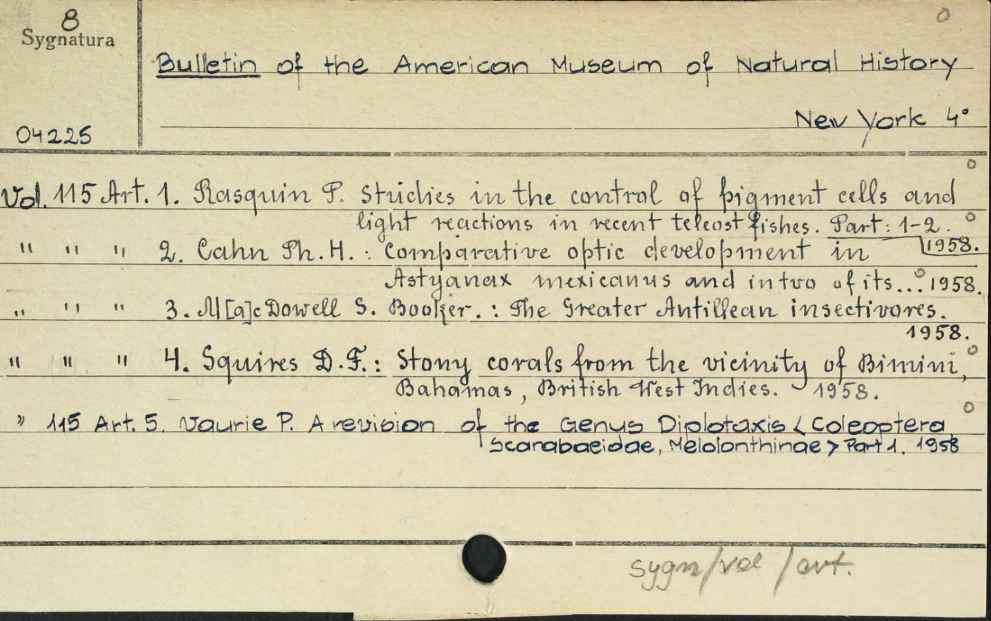 8
Sygnatura
o
Bulletin of the American Museum of Natural History
New York 4°
04225
o
Vol. 115 Art. 1. Rasquin P. Studies in the control of pigment cells and
light reactions in recent teleost fishes. Part: 1-2. o
" " " 2. Cahn Ph. H. : Comparative optic development in 1958.
Astyanax mexicanus and in two of its... o 1958.
" " " 3. M[a]c Dowell S. Booker. : The Greater Antillean insectivores.
1958.
" " " 4. Squires D. F. : Stony corals from the vicinity of Bimini, o
Bahamas, British West Indies. 1958.
o
" 115 Art. 5. Vaurie P. A revision of the Genus Diplotaxis < Coleoptera
Scarabaeidae, Melolonthinae > Part 1. 1958
sygn/vol/art.